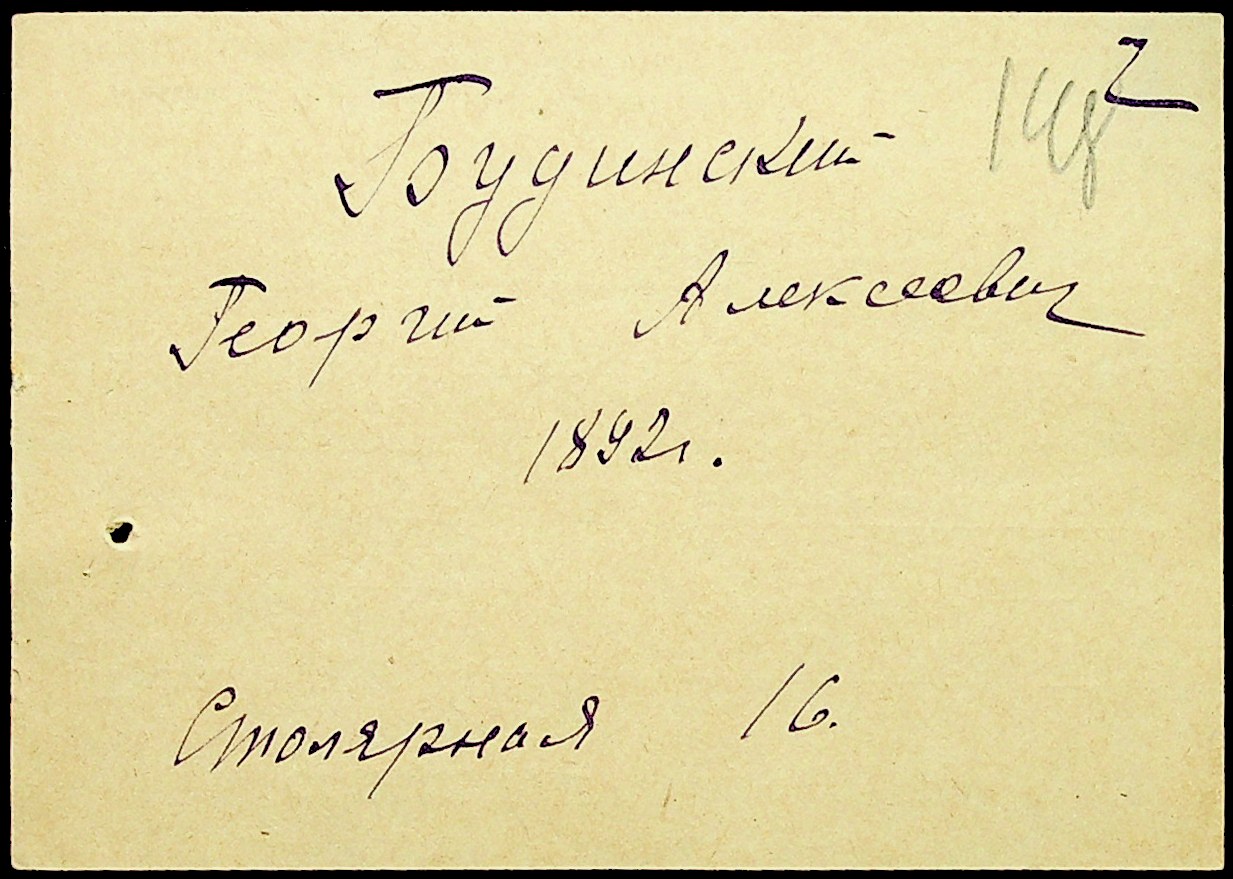 2
148
Будинский
Георгий Алексеевич
1892г.
Столярная 16.